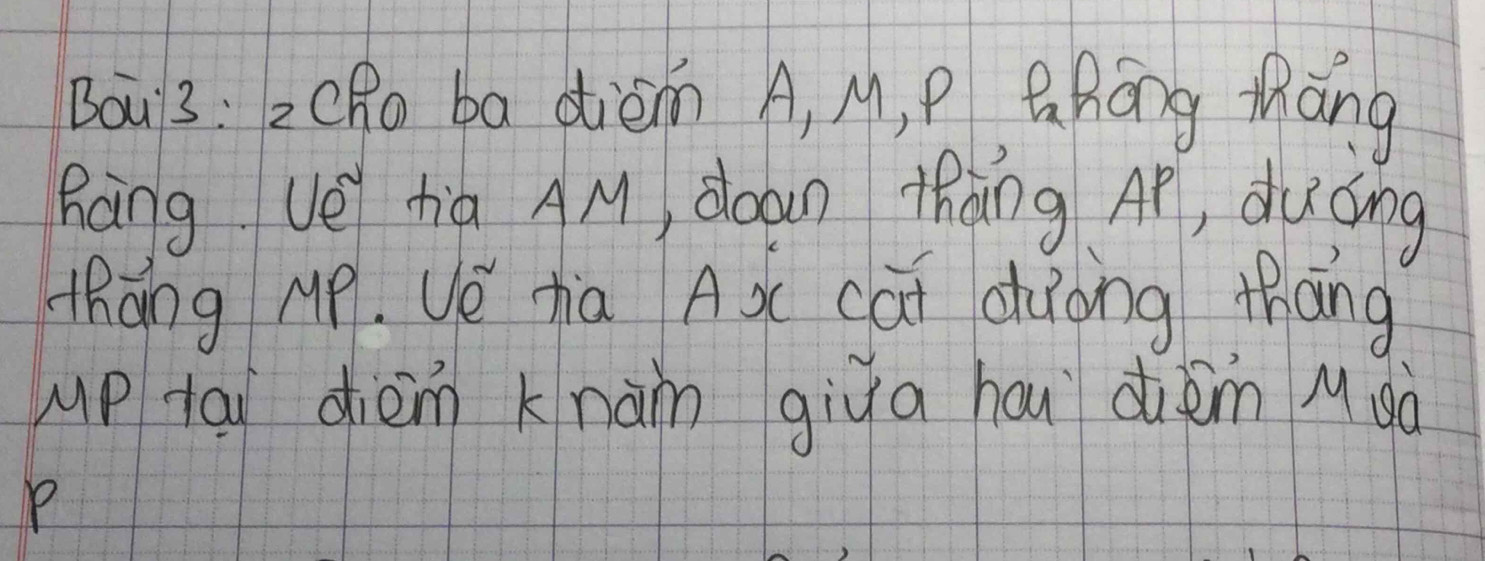 Bài 3: 2 Cho ba điểm A, M, P không thẳng
hàng. Vẽ tia AM, đoạn thẳng AP, đường
thẳng MP. Vẽ tia Ax cắt đường thẳng
MP tại điểm K nằm giữa hai điểm M và
P